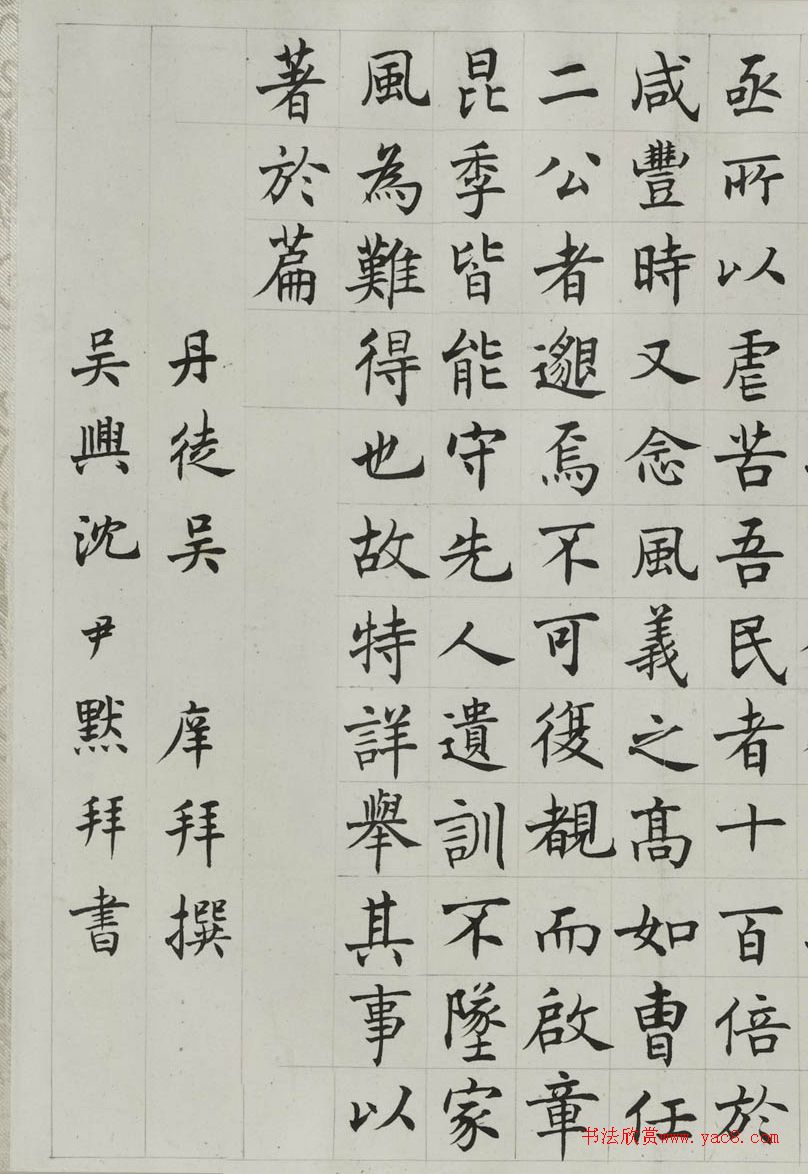 亟所以虐苦吾民者十百倍於
咸豐時又念風義之高如曹任
二公者邈焉不可復覩而啟章
昆季皆能守先人遺訓不墜家
風為難得也故特詳舉其事以
著於篇
丹徒吴庠拜撰
吴興沈尹默拜書
书法欣赏www.yac8.com